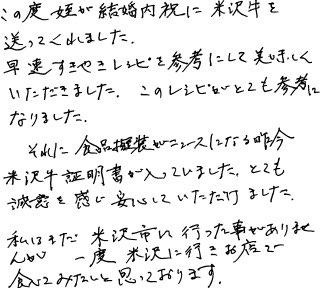 この度姪が結婚内祝に米沢牛を
送ってくれました。
早速すきやきレシピを参考にして美味しく
いただきました。このレシピがとても参考に
なりました。
それに食品擬装がニュースになる昨今
米沢牛証明書が入っていました。とても
誠意を感じ安心していただけました。
私はまだ米沢市に行った事がありませ
んが 一度米沢に行きお店で
食べてみたいと思っております。